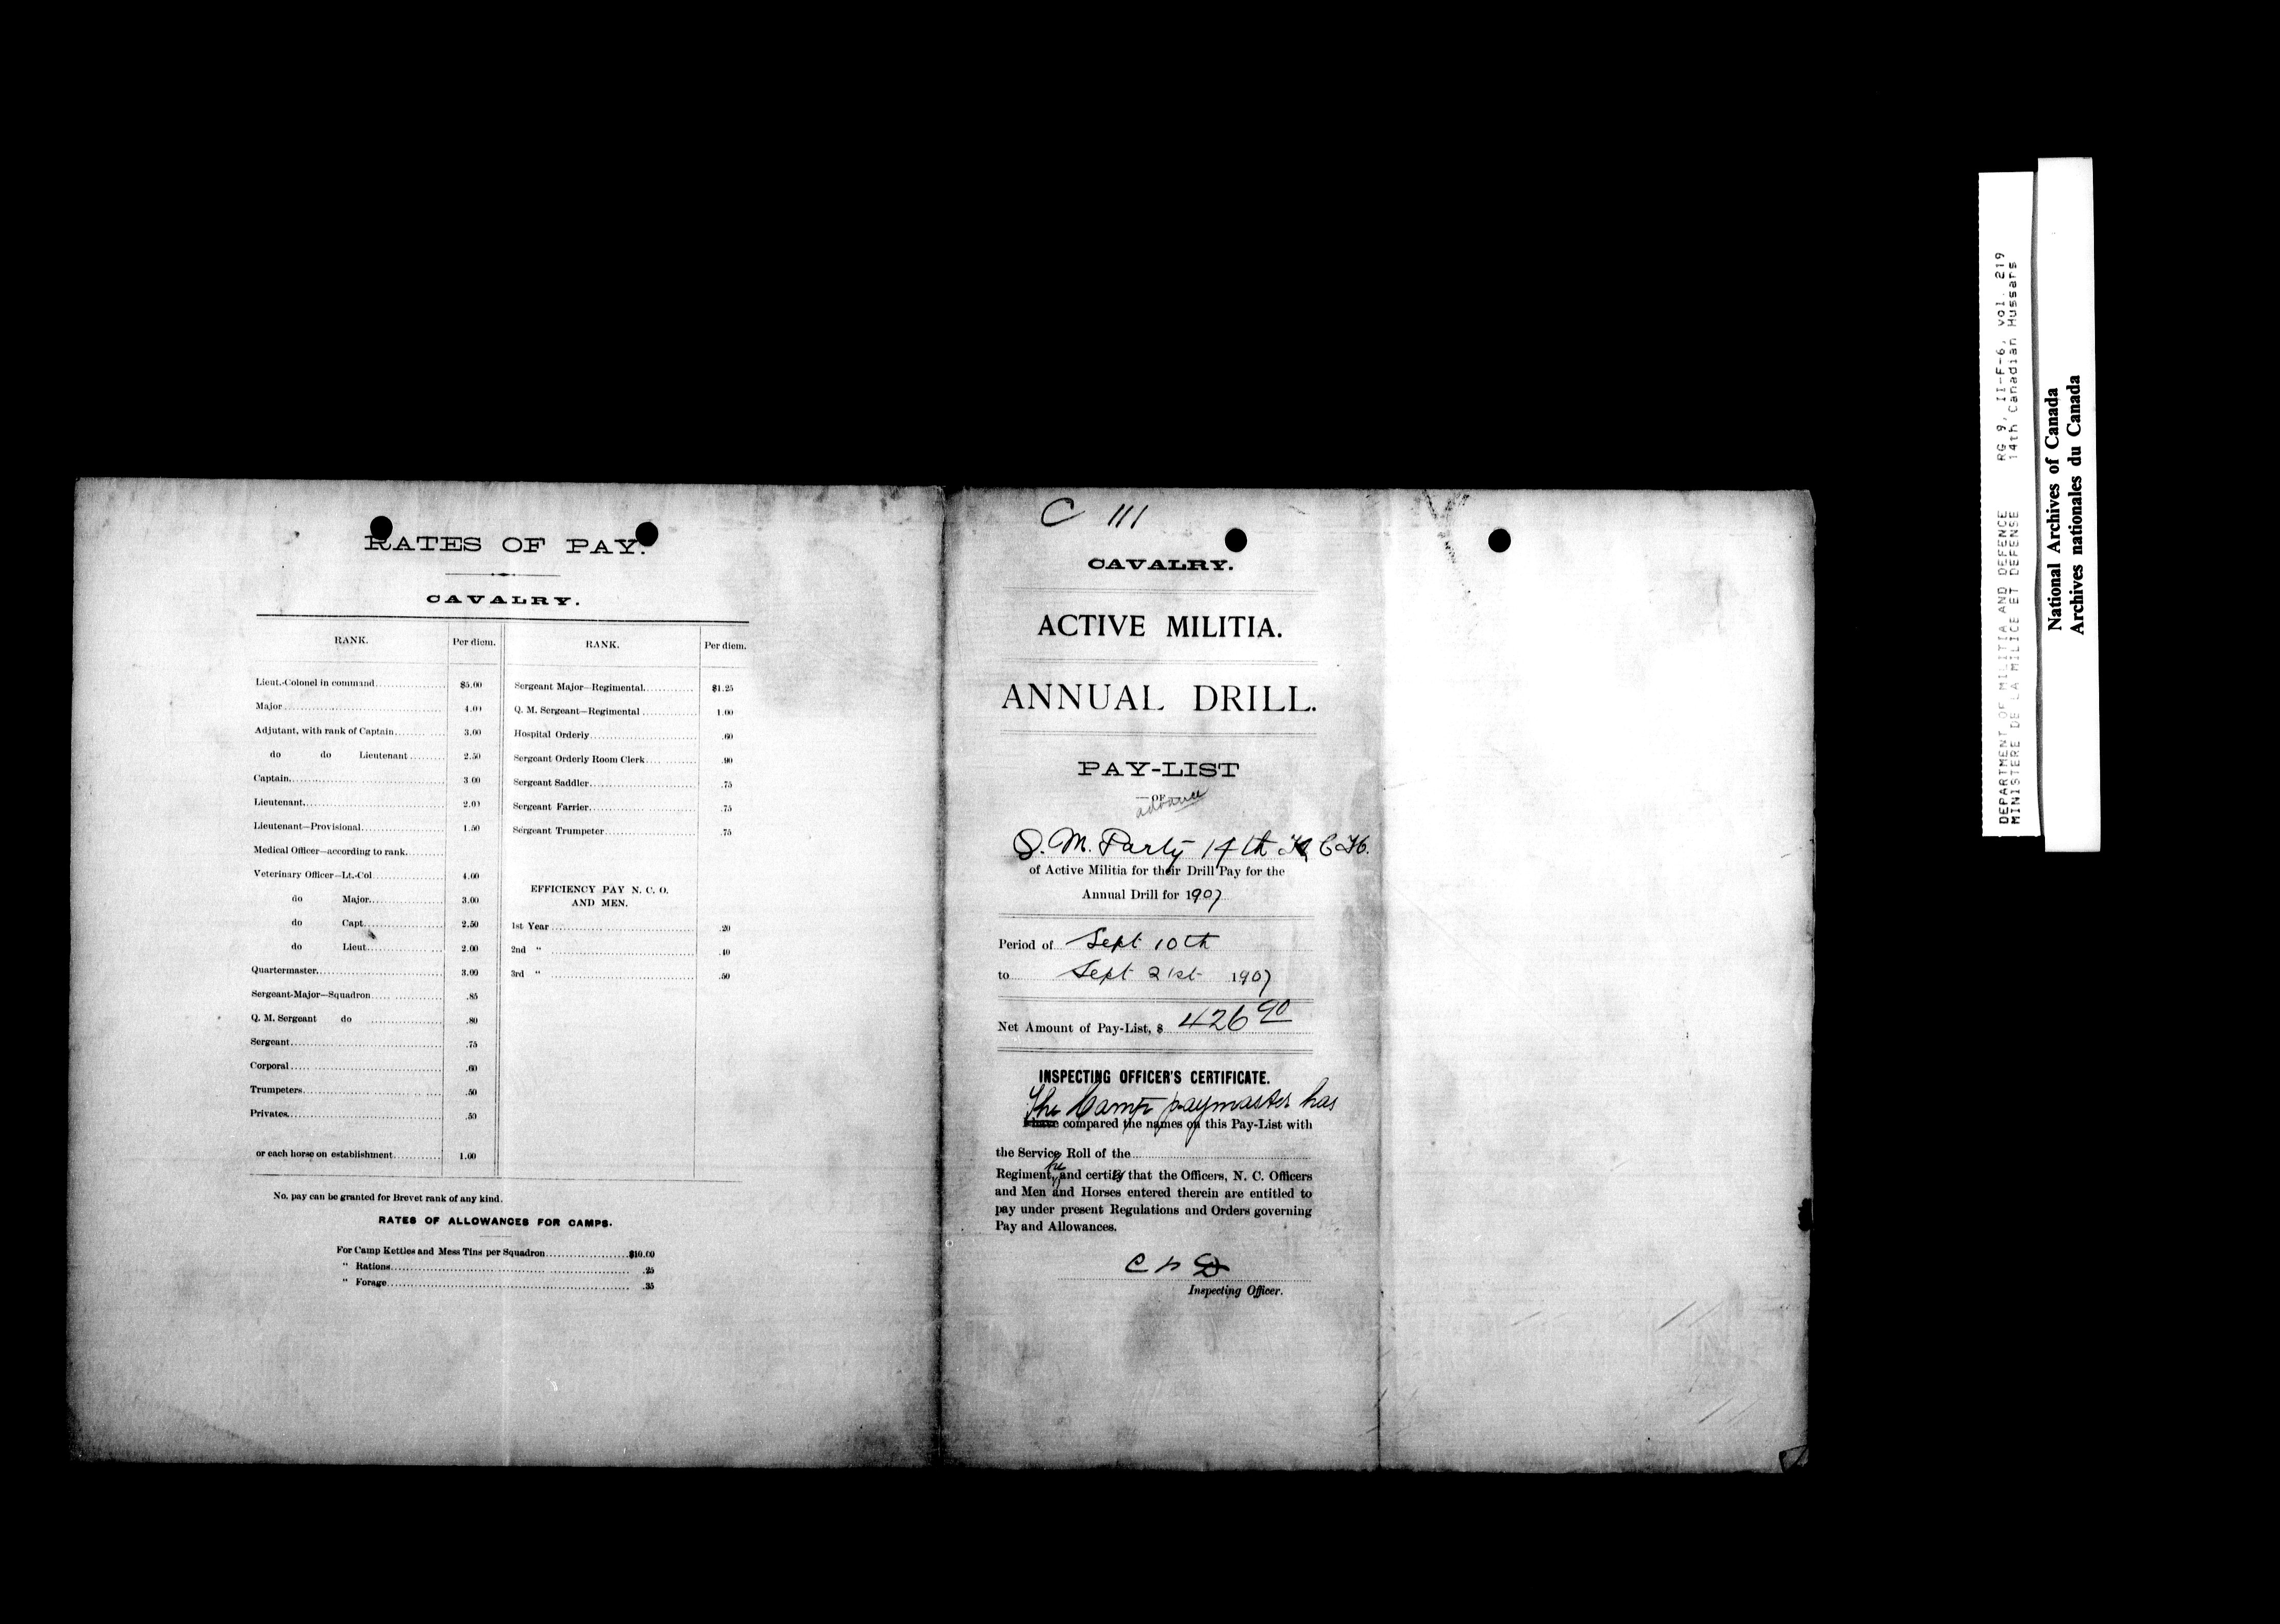 RATES OF PAY.
CAVALRY.
RANK. Per diem.
Lieut.-Colonel in command $5.00
Major 4.00
Adjutant, with rank of Captain 3.00
do do Lieutenant 2.50
Captain 3 00
Lieutenant 2.00
Lieutenant—Provisional 1.50
Medical Officer—according to rank
Veterinary Officer—Lt.-Col 4.00
do Major 3.00
do Capt 2.50
do Lieut 2.00
Quartermaster 3.00
Sergeant-Major—Squadron .85
Q. M. Sergeant do .80
Sergeant .75
Corporal .60
Trumpeters .50
Privates .50
or each horse on establishment 1.00
RANK. Per diem.
Sergeant Major—Regimental $1.25
Q. M. Sergeant—Regimental 1.00
Hospital Orderly .60
Sergeant Orderly Room Clerk .90
Sergeant Saddler .75
Sergeant Farrier .75
Sergeant Trumpeter .75
EFFICIENCY PAY N. C. O.
AND MEN.
1st Year .20
2nd " .40
3rd " .50
No. pay can be granted for Brevet rank of any kind.
RATES OF ALLOWANCES FOR CAMPS.
For Camp Kettles and Mess Tins per Squadron $10.00
" Rations .25
" Forage .35
C 111
CAVALRY.
ACTIVE MILITIA.
ANNUAL DRILL.
PAY-LIST
—OF
advance
Q. M. Party 14th K C H.
of Active Militia for their Drill Pay for the
Annual Drill for 1907
Period of Sept 10th
to Sept 21st 1907
Net Amount of Pay-List, $ 426 90
INSPECTING OFFICER'S CERTIFICATE.
The Camp paymaster has
I have compared the names on this Pay-List with
the Service Roll of the
he
Regiment, and certify that the Officers, N. C. Officers
and Men and Horses entered therein are entitled to
pay under present Regulations and Orders governing
Pay and Allowances.
Inspecting Officer.
DEPARTMENT OF MILITIA AND DEFENCE RG 9, II-F-6, vol. 219
MINISTERE DE LA MILICE ET DEFENSE 14th Canadian Hussars
National Archives of Canada
Archives nationales du Canada